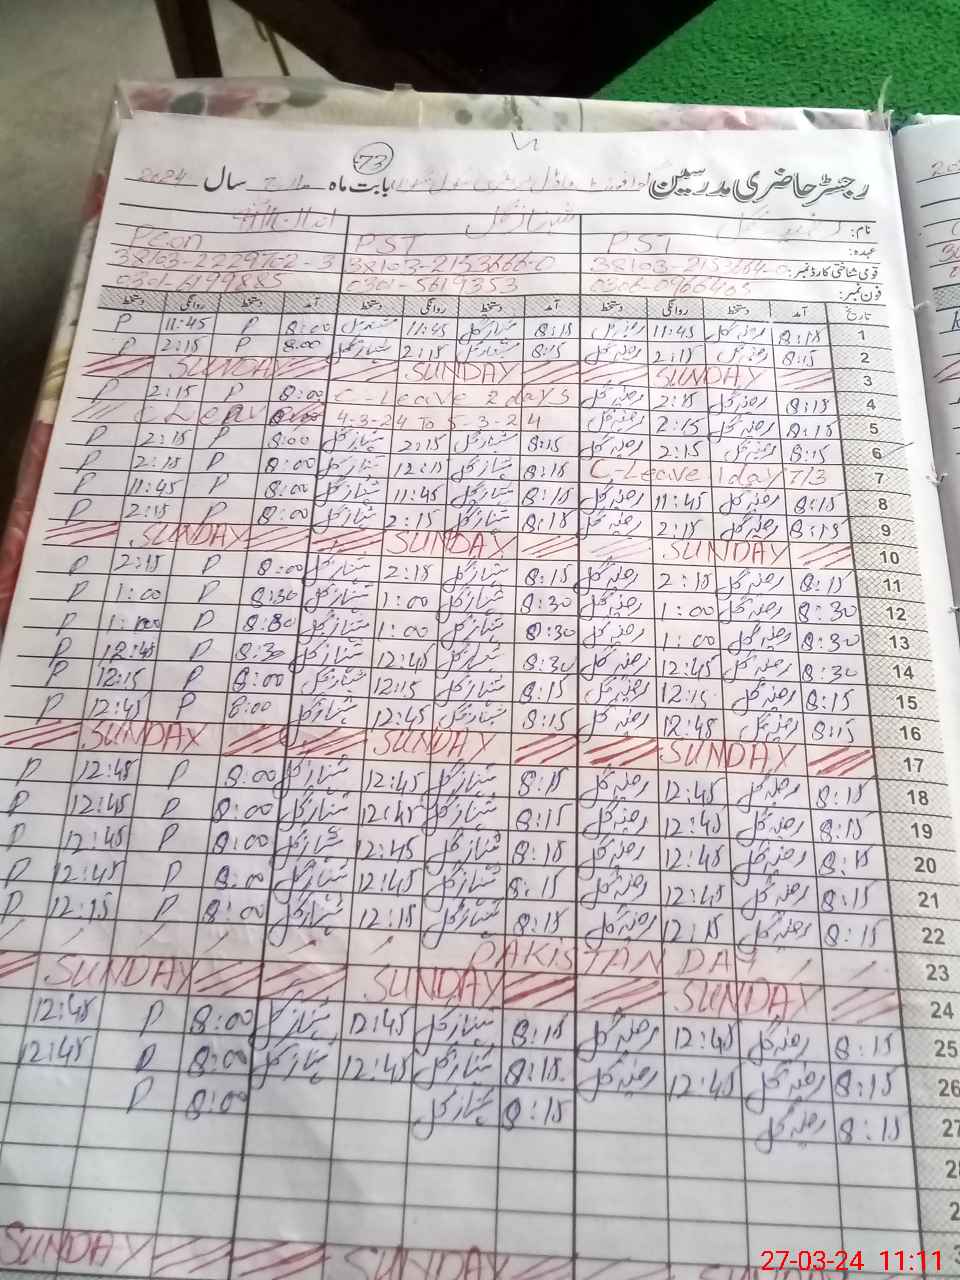 73
رجسٹر حاضری مدرسین بابت ماہ مارچ سال 2024
نام: رضیہ گل شہناز گل
عہدہ: PST PST Peon
قومی شناختی کارڈ نمبر: 38103-2153666-0 38103-2229702-3
فون نمبر: 0301-5619353
تاریخ آمد دستخط روانگی دستخط آمد دستخط روانگی دستخط آمد دستخط روانگی دستخط
1 8:15 رضیہ گل 11:45 رضیہ گل 8:15 شہناز گل 11:45 شہناز گل 8:00 P 11:45 P
2 8:15 رضیہ گل 2:15 رضیہ گل 8:15 شہناز گل 2:15 شہناز گل 8:00 P 2:15 P
3 SUNDAY SUNDAY SUNDAY
4 8:15 رضیہ گل 2:15 رضیہ گل C-Leave 2 days 8:00 P 2:15 P
5 8:15 رضیہ گل 2:15 رضیہ گل 4-3-24 To 5-3-24
6 8:15 رضیہ گل 2:15 رضیہ گل 8:15 شہناز گل 2:15 شہناز گل 8:00 P 2:15 P
7 C-Leave 1 day 7/3 8:15 شہناز گل 12:15 شہناز گل 8:00 P 2:15 P
8 8:15 رضیہ گل 11:45 رضیہ گل 8:15 شہناز گل 11:45 شہناز گل 8:00 P 11:45 P
9 8:15 رضیہ گل 2:15 رضیہ گل 8:15 شہناز گل 2:15 شہناز گل 8:00 P 2:15 P
10 SUNDAY SUNDAY SUNDAY
11 8:15 رضیہ گل 2:15 رضیہ گل 8:15 شہناز گل 2:15 شہناز گل 8:00 P 2:15 P
12 8:30 رضیہ گل 1:00 رضیہ گل 8:30 شہناز گل 1:00 شہناز گل 8:30 P 1:00 P
13 8:30 رضیہ گل 1:00 رضیہ گل 8:30 شہناز گل 1:00 شہناز گل 8:30 P 1:00 P
14 8:30 رضیہ گل 12:45 رضیہ گل 8:30 شہناز گل 12:45 شہناز گل 8:30 P 12:45 P
15 8:15 رضیہ گل 12:15 رضیہ گل 8:15 شہناز گل 12:15 شہناز گل 8:00 P 12:15 P
16 8:15 رضیہ گل 12:45 رضیہ گل 8:15 شہناز گل 12:45 شہناز گل 8:00 P 12:45 P
17 SUNDAY SUNDAY SUNDAY
18 8:15 رضیہ گل 12:45 رضیہ گل 8:15 شہناز گل 12:45 شہناز گل 8:00 P 12:45 P
19 8:15 رضیہ گل 12:45 رضیہ گل 8:15 شہناز گل 12:45 شہناز گل 8:00 P 12:45 P
20 8:15 رضیہ گل 12:45 رضیہ گل 8:15 شہناز گل 12:45 شہناز گل 8:00 P 12:45 P
21 8:15 رضیہ گل 12:45 رضیہ گل 8:15 شہناز گل 12:45 شہناز گل 8:00 P 12:45 P
22 8:15 رضیہ گل 12:15 رضیہ گل 8:15 شہناز گل 12:15 شہناز گل 8:00 P 12:15 P
23 PAKISTAN DAY
24 SUNDAY SUNDAY SUNDAY
25 8:15 رضیہ گل 12:45 رضیہ گل 8:15 شہناز گل 12:45 شہناز گل 8:00 P 12:45
26 8:15 رضیہ گل 12:45 رضیہ گل 8:15 شہناز گل 12:45 شہناز گل 8:00 P 12:45
27 8:15 رضیہ گل 8:15 شہناز گل 8:00 P
SUNDAY SUNDAY SUNDAY
27-03-24 11:11